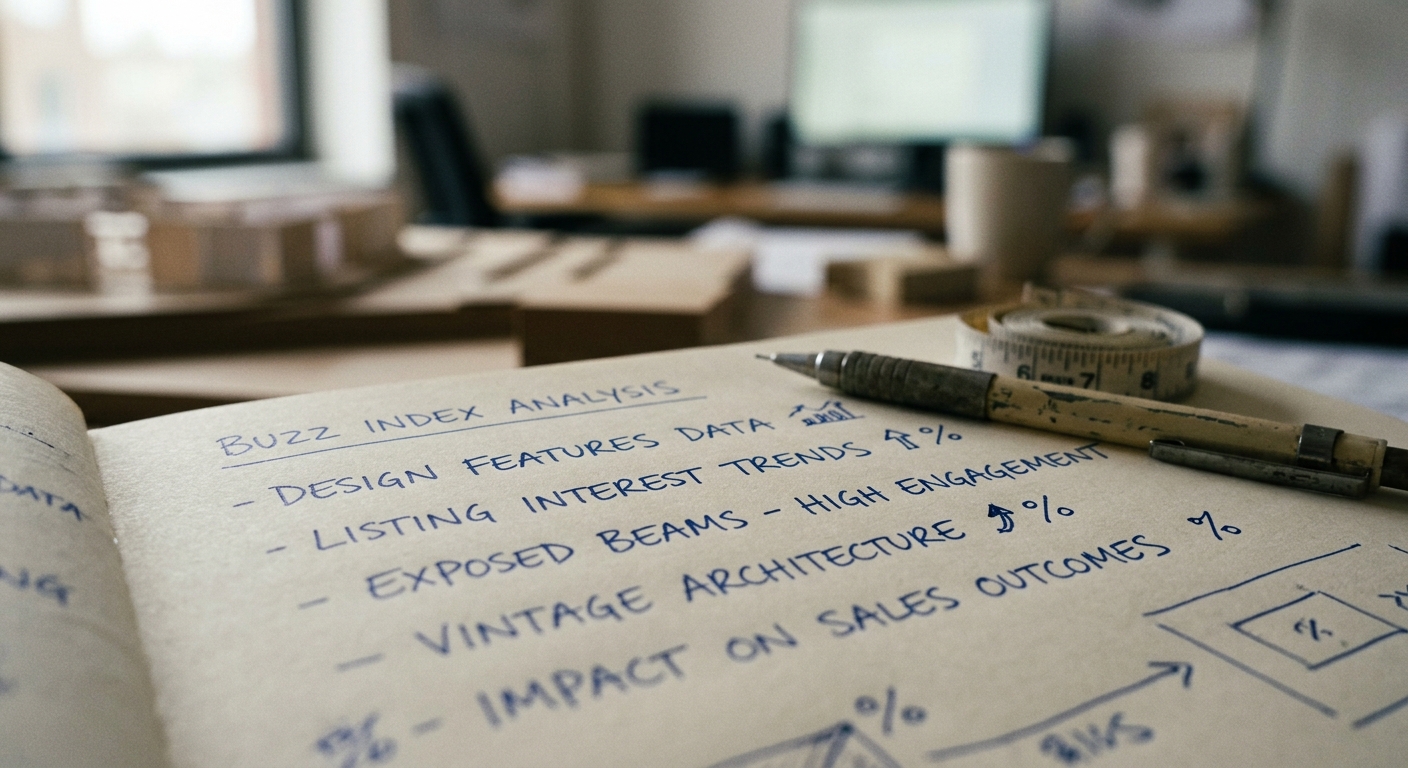 BUZZ INDEX ANALYSIS
- DESIGN FEATURES DATA
- LISTING INTEREST TRENDS ⇑ %
- EXPOSED BEAMS - HIGH ENGAGEMENT
- VINTAGE ARCHITECTURE ⇑ %
- IMPACT ON SALES OUTCOMES %
%
%
DATA
NG
6 7 8